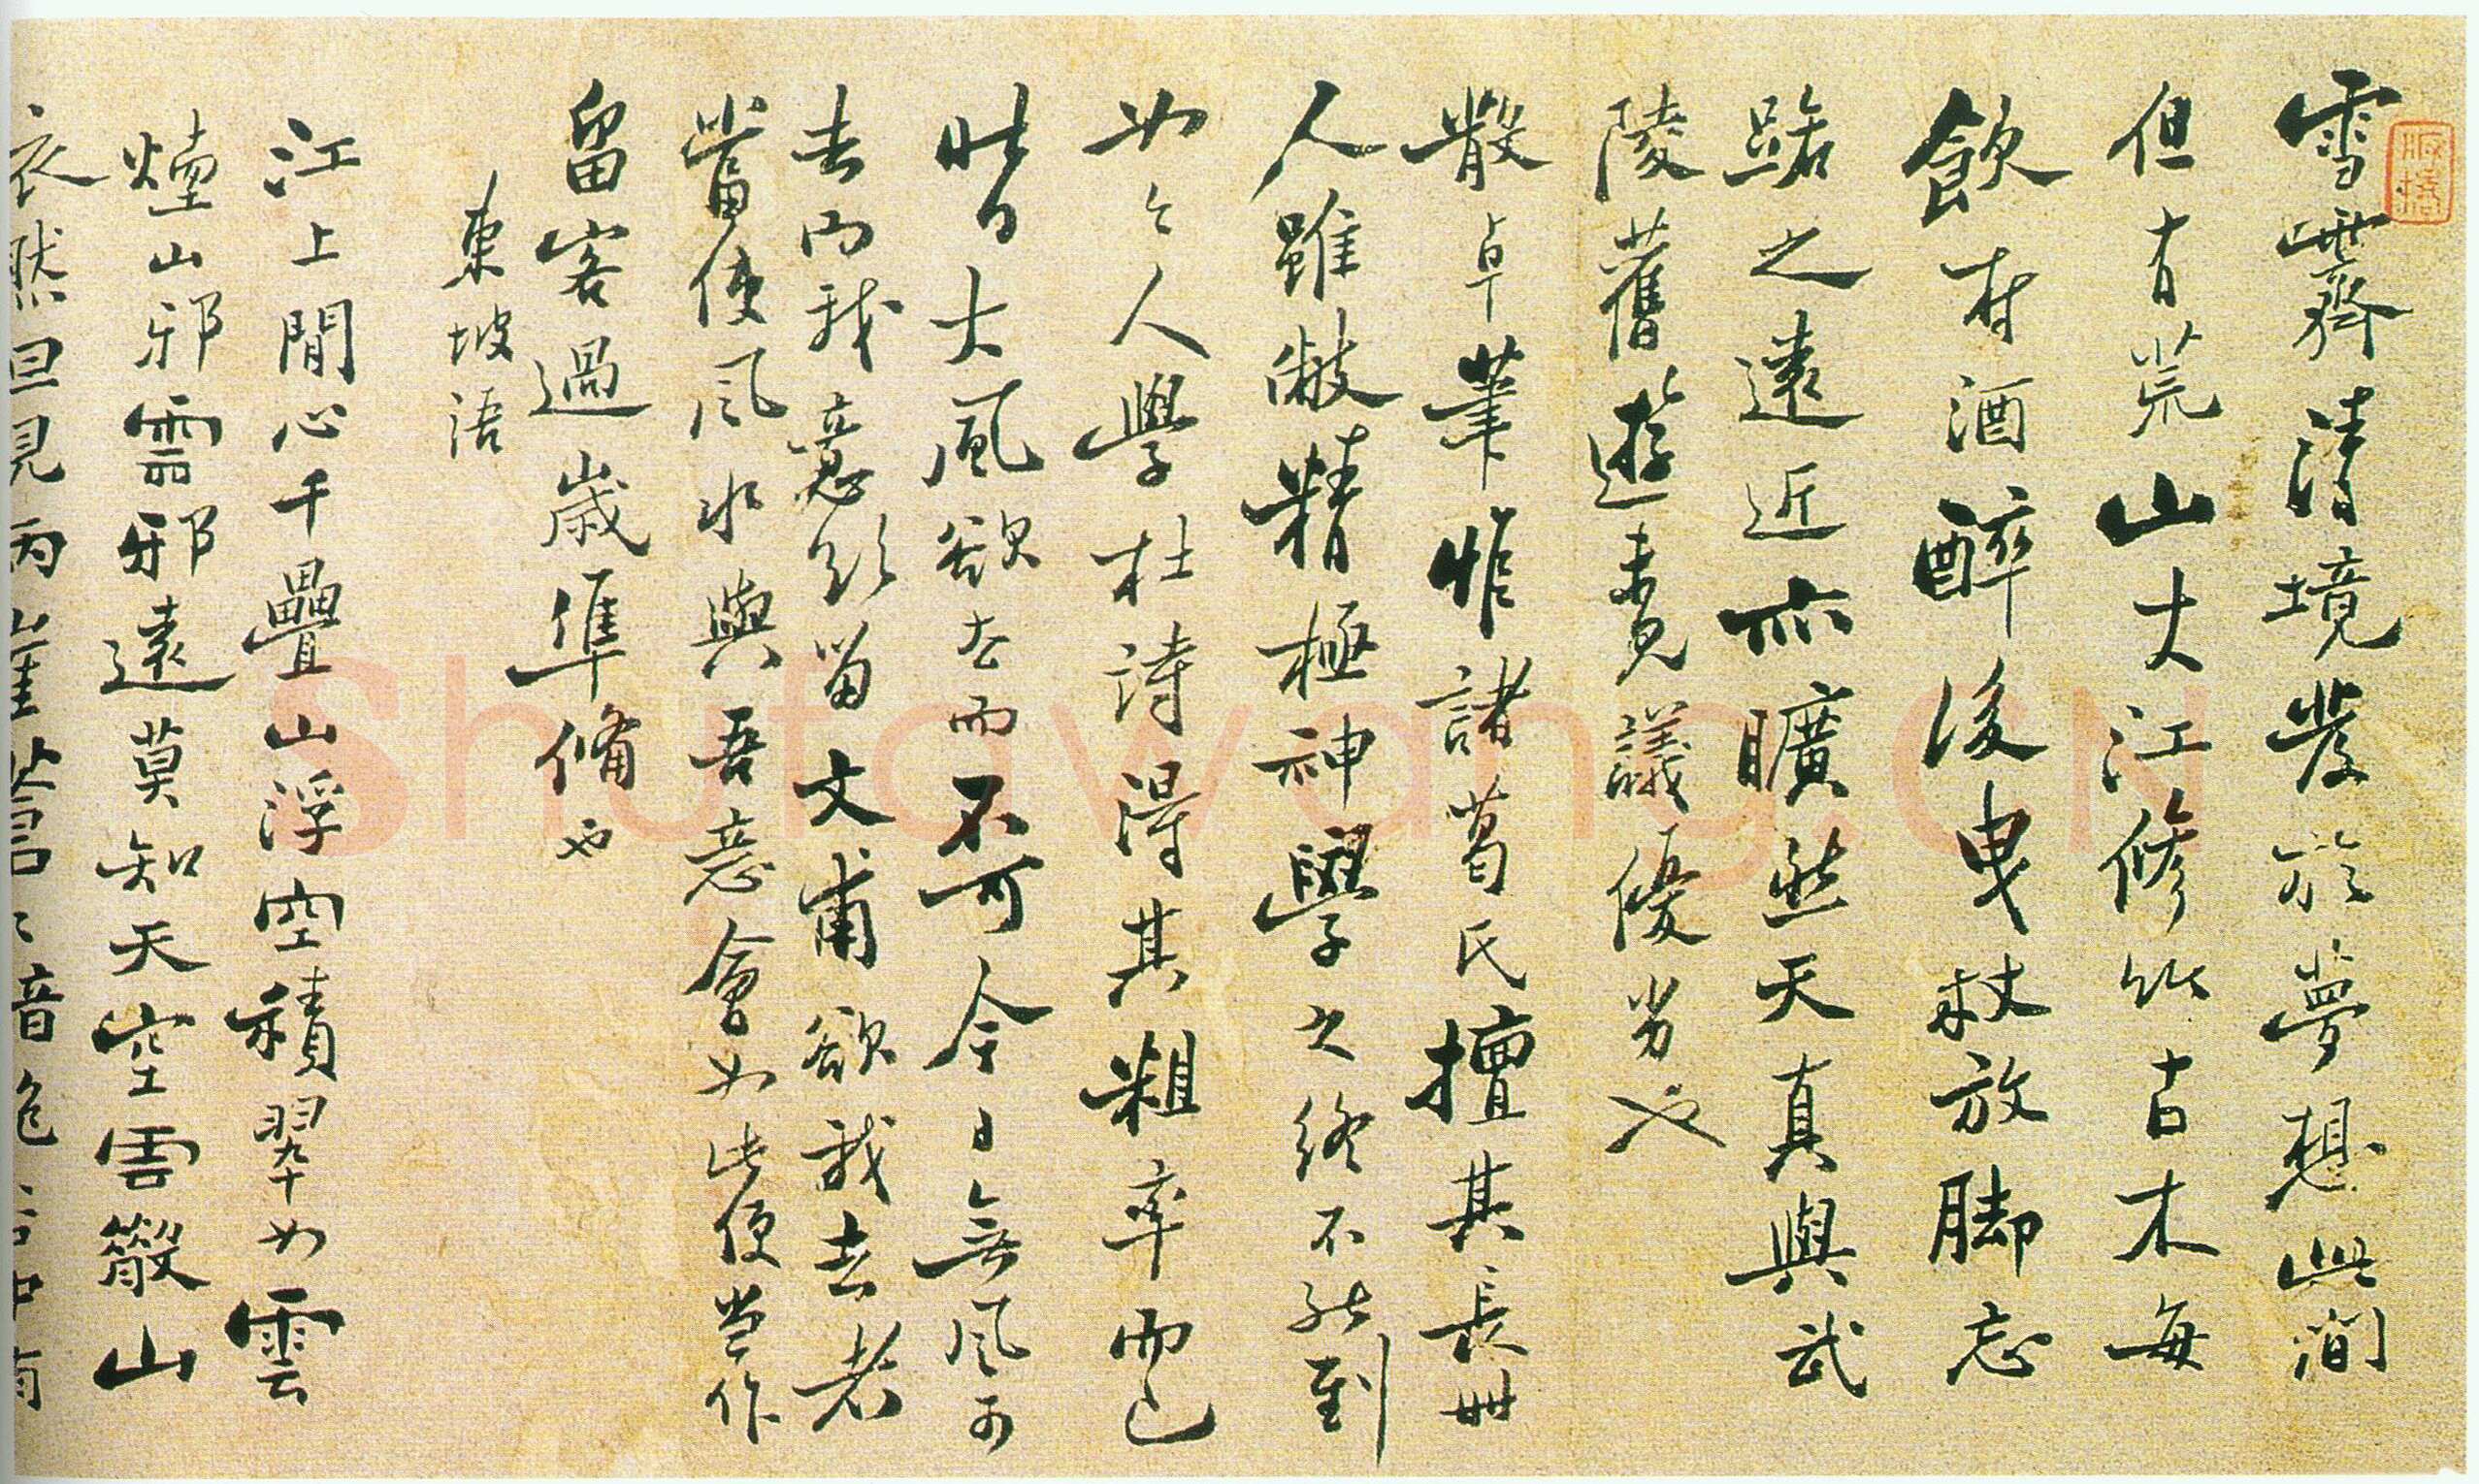 雪霽清境發於夢想此間
但有荒山大江修竹古木每
飲村酒醉後曳杖放脚忘
踞之遠近亦曠然天真與武
陵舊遊未見議優劣也
散卓筆惟諸葛氏擅其長世
人雖極精極神學之終不能到
如今人學杜詩得其粗率而已
昔日大風欲去而不可今日無風可
去而我意欲留文甫欲我去者
當使風水與吾意會如此便當作
留客過歲準備也
東坡語
江上閒心千疊山浮空積翠如雲
煙山邪雲邪遠莫知天空雲散山
依然但見兩崖蒼蒼暗絕谷中有
Shufawang.CN